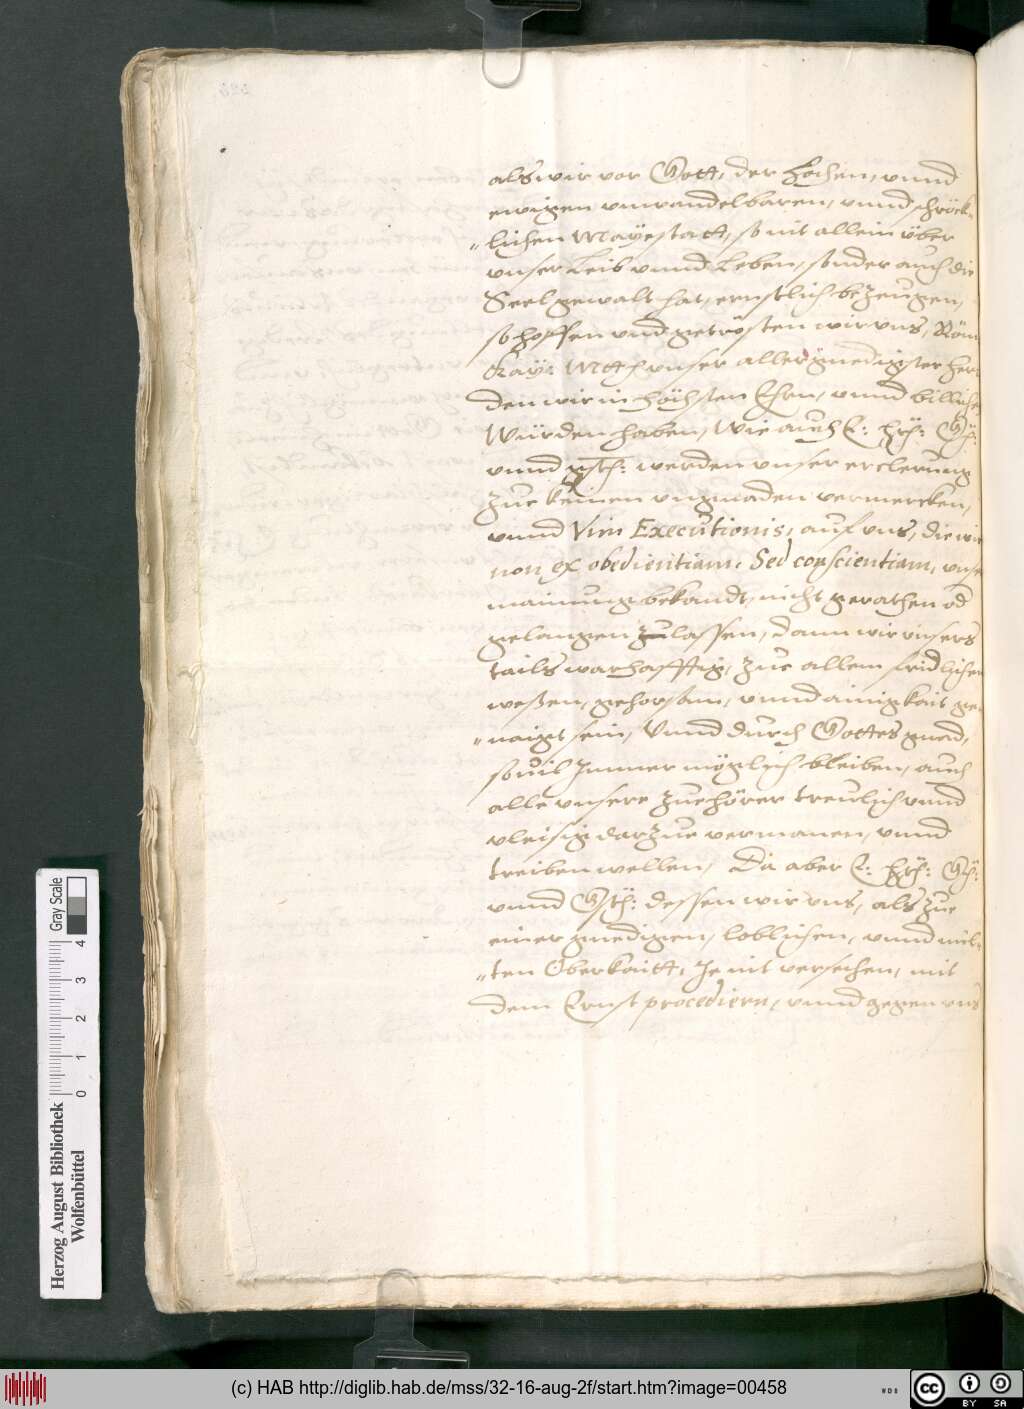 als wir vor Gott, der hochen, vnnd
ewigen vnwandelbaren, vnnd schröck-
"lichen Mayestatt, so nit allein über
vnser Leib vnnd Leben, sonder auch die
Seel gewalt hat, ernstlich bezeugen,
so hoffen vnd getrösten wir vns, Röm
Kay: Mtt vnser allergnedigster her
den wir in höchsten Ehrn, vnnd billichen
Würden haben, Wie auch E:
vnnd werden vnser erclerung
zue keinen vngnaden vermercken,
vnnd Vim Executionis, auf vns, die wir
non ex obedientiam, Sed conscientiam, vnse
mainung bekandt, nicht gerathen od
gelangen zulassen, dann wir vnsers
tails warhafftig, zue allem fridlichen
weßen, gehorsam, vnnd ainigkait ge-
"naigt sein, Vnnd durch Gottes gnad,
souil Immer möglich bleiben, auch
alle vnsere zuehörer treulich vnnd
vleisig darzue vermanen, vnnd
treiben wellen, Da aber E:
vnnd dessen wir vns, als zue
einer gnedigen, loblichen, vnnd mil-
"ten Oberkaitt, Je nit versechen, mit
dem Ernst procediern, vnnd gegen vns
Herzog August Bibliothek
Wolfenbüttel
Gray Scale
0 1 2 3 4
(c) HAB http://diglib.hab.de/mss/32-16-aug-2f/start.htm?image=00458
WDB
cc BY SA